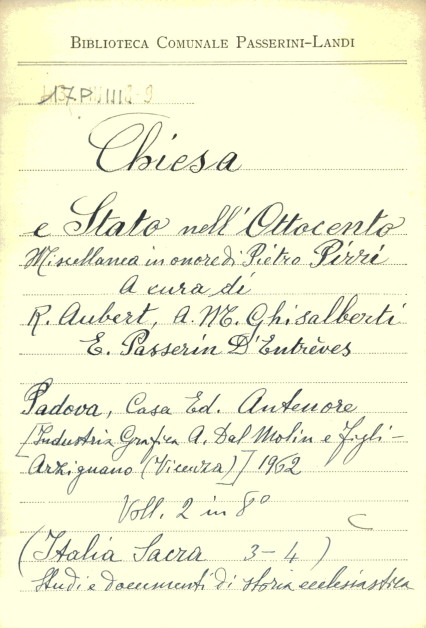 BIBLIOTECA COMUNALE PASSERINI-LANDI
Chiesa
e Stato nell'Ottocento
Miscellanea in onore di Pietro Pirri
A cura di
R. Aubert, A. M. Ghisalberti
E. Passerin D'Entrèves
Padova, Casa Ed. Antenore
[Industria Grafica A. Dal Molin e figli -
Arzignano (Vicenza)] 1962
Voll. 2 in 8°
C
(Italia Sacra 3-4)
Studi e documenti di storia ecclesiastica